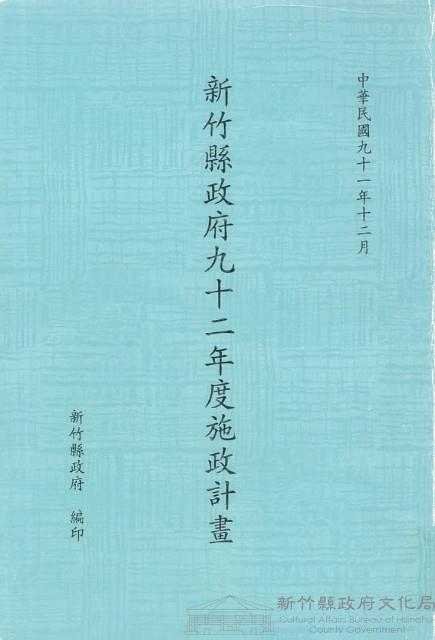 中華民國九十一年十二月
新竹縣政府九十二年度施政計畫
新竹縣政府 編印
新竹縣政府文化局
Cultural Affairs Bureau of Hsinchu
County Government